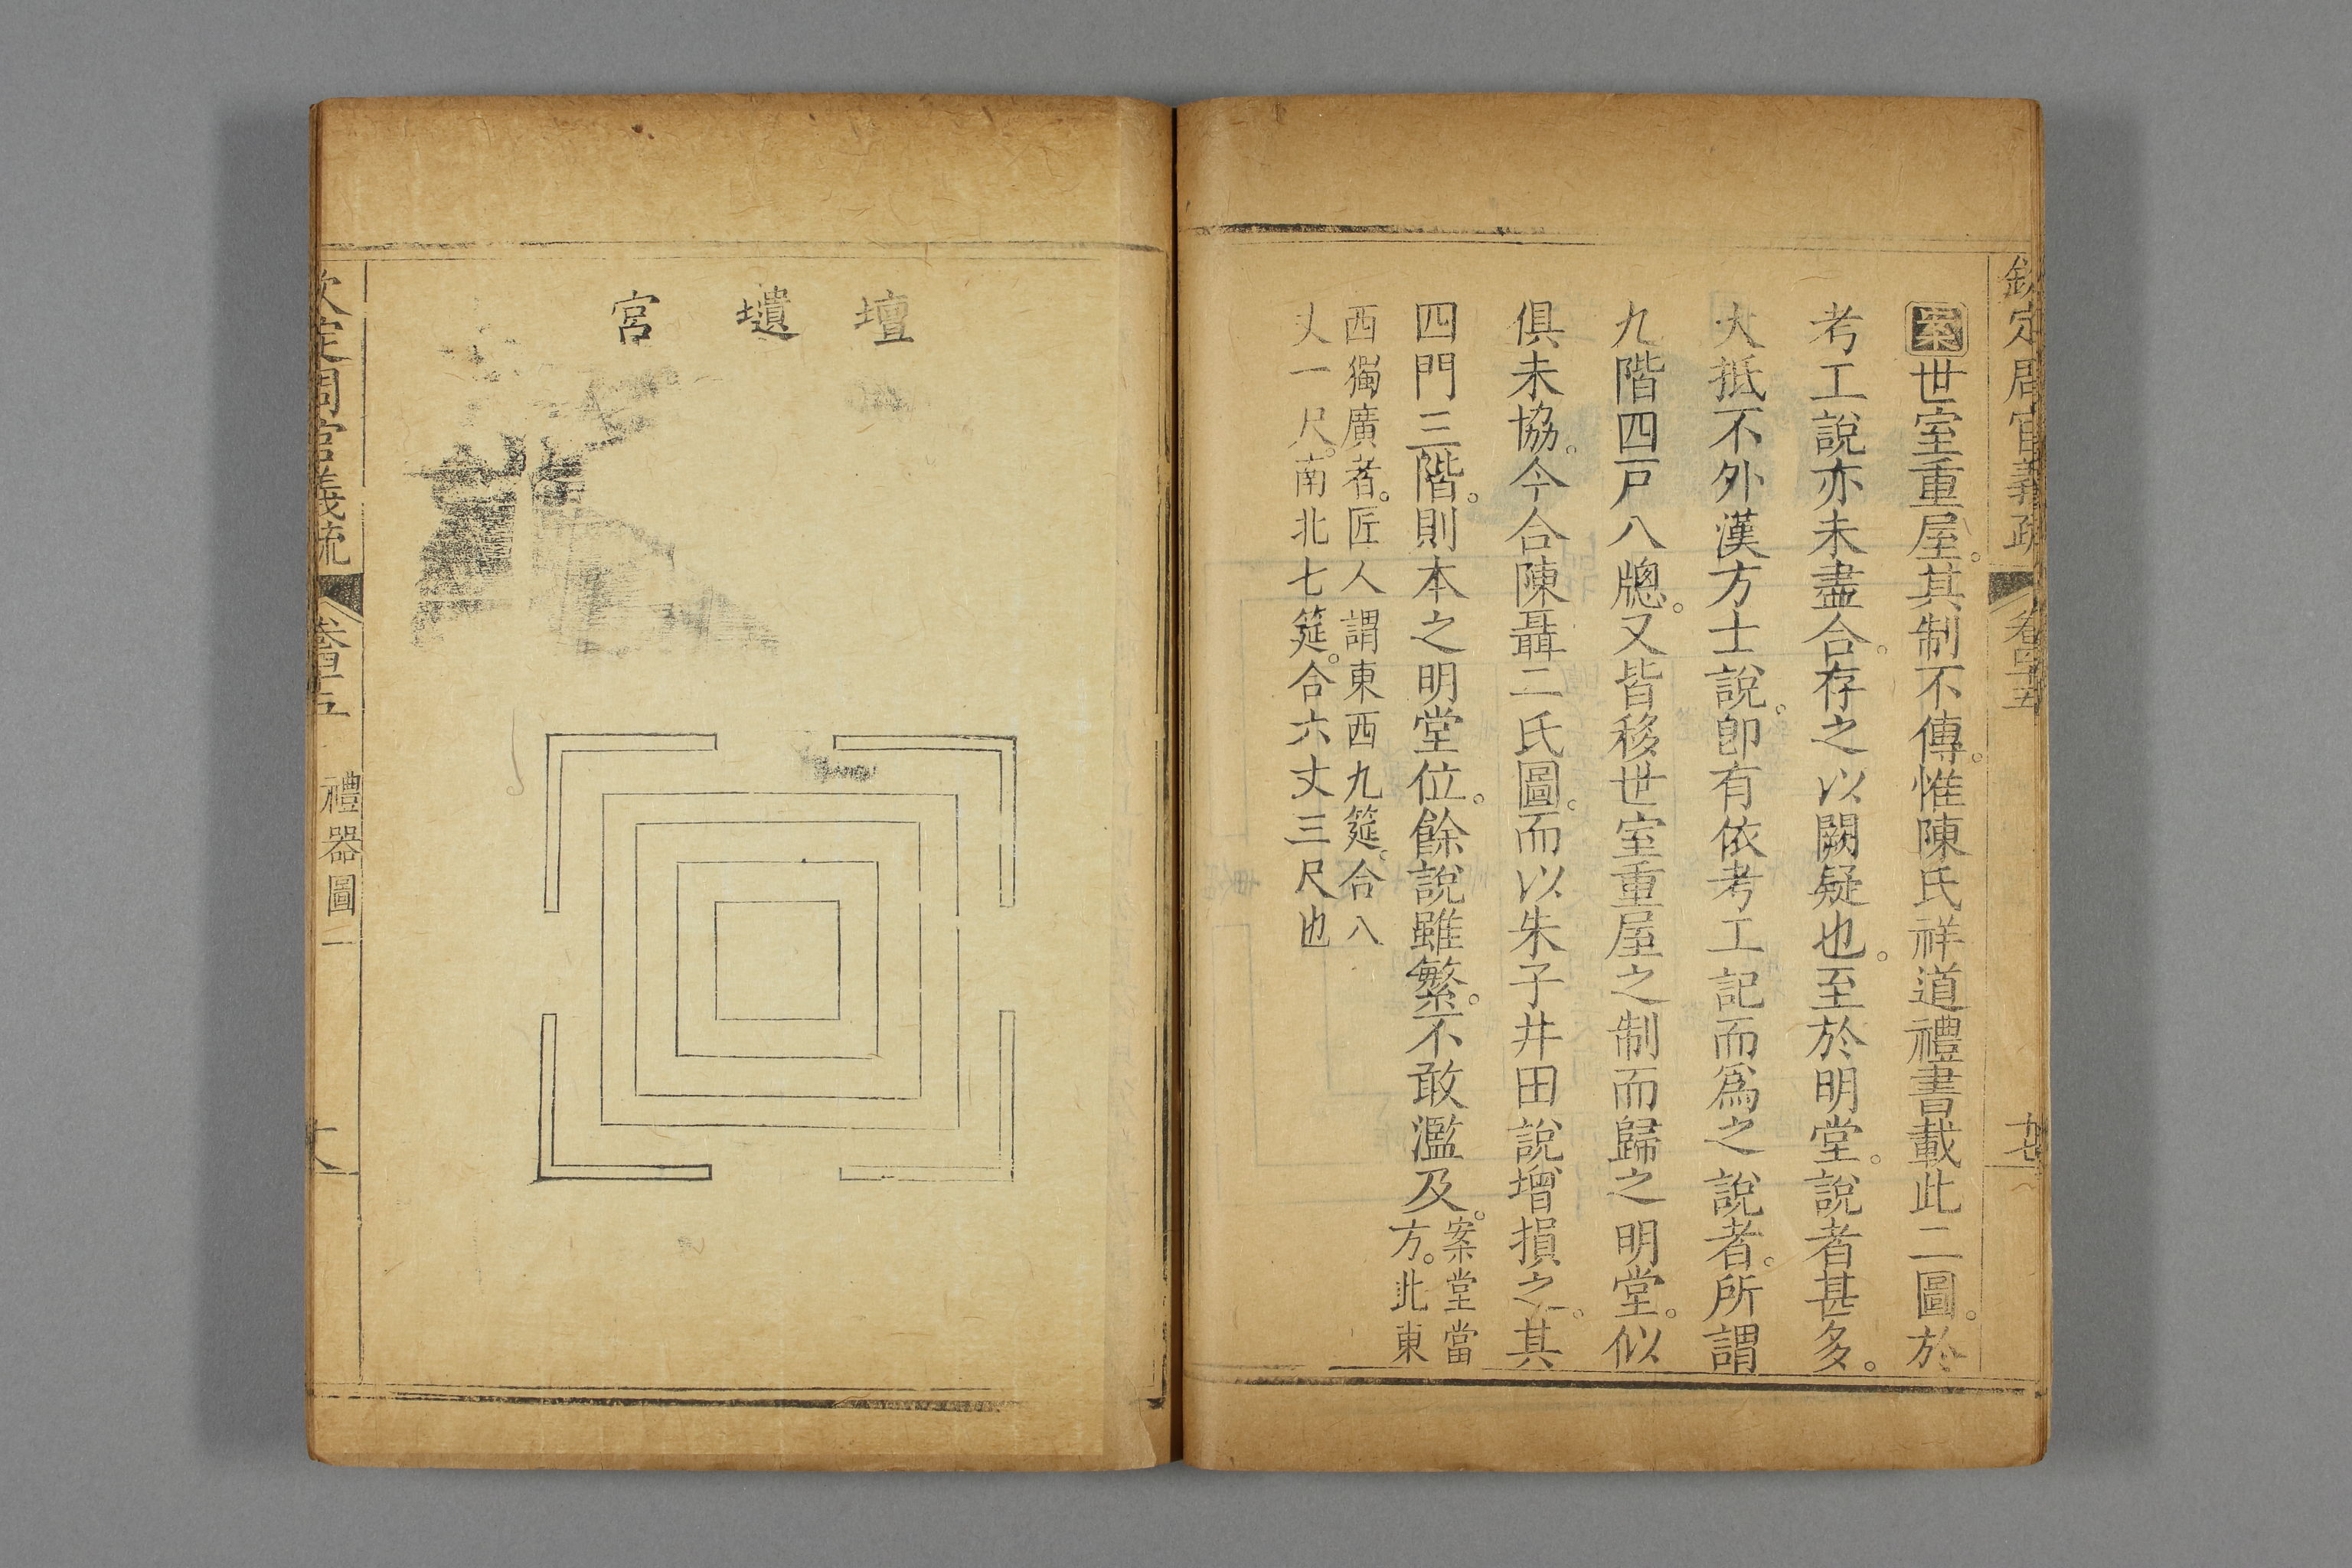 欽定周官義疏 卷四十五
案世室重屋。其制不傳。惟陳氏祥道禮書載此二圖。於
考工說亦未盡合。存之以闕疑也。至於明堂。說者甚多。
大抵不外漢方士說。卽有依考工記而爲之說者。所謂
九階四戸八牕。又皆移世室重屋之制而歸之明堂。似
俱未協。今合陳聶二氏圖。而以朱子井田說增損之。其
四門三階。則本之明堂位。餘說雖繁。不敢濫及。
案堂當
方。此東
西獨廣者。匠人謂東西九筵。合八
丈一尺。南北七筵。合六丈三尺也
壇壝宮
欽定周官義疏 卷四十五 禮器圖一